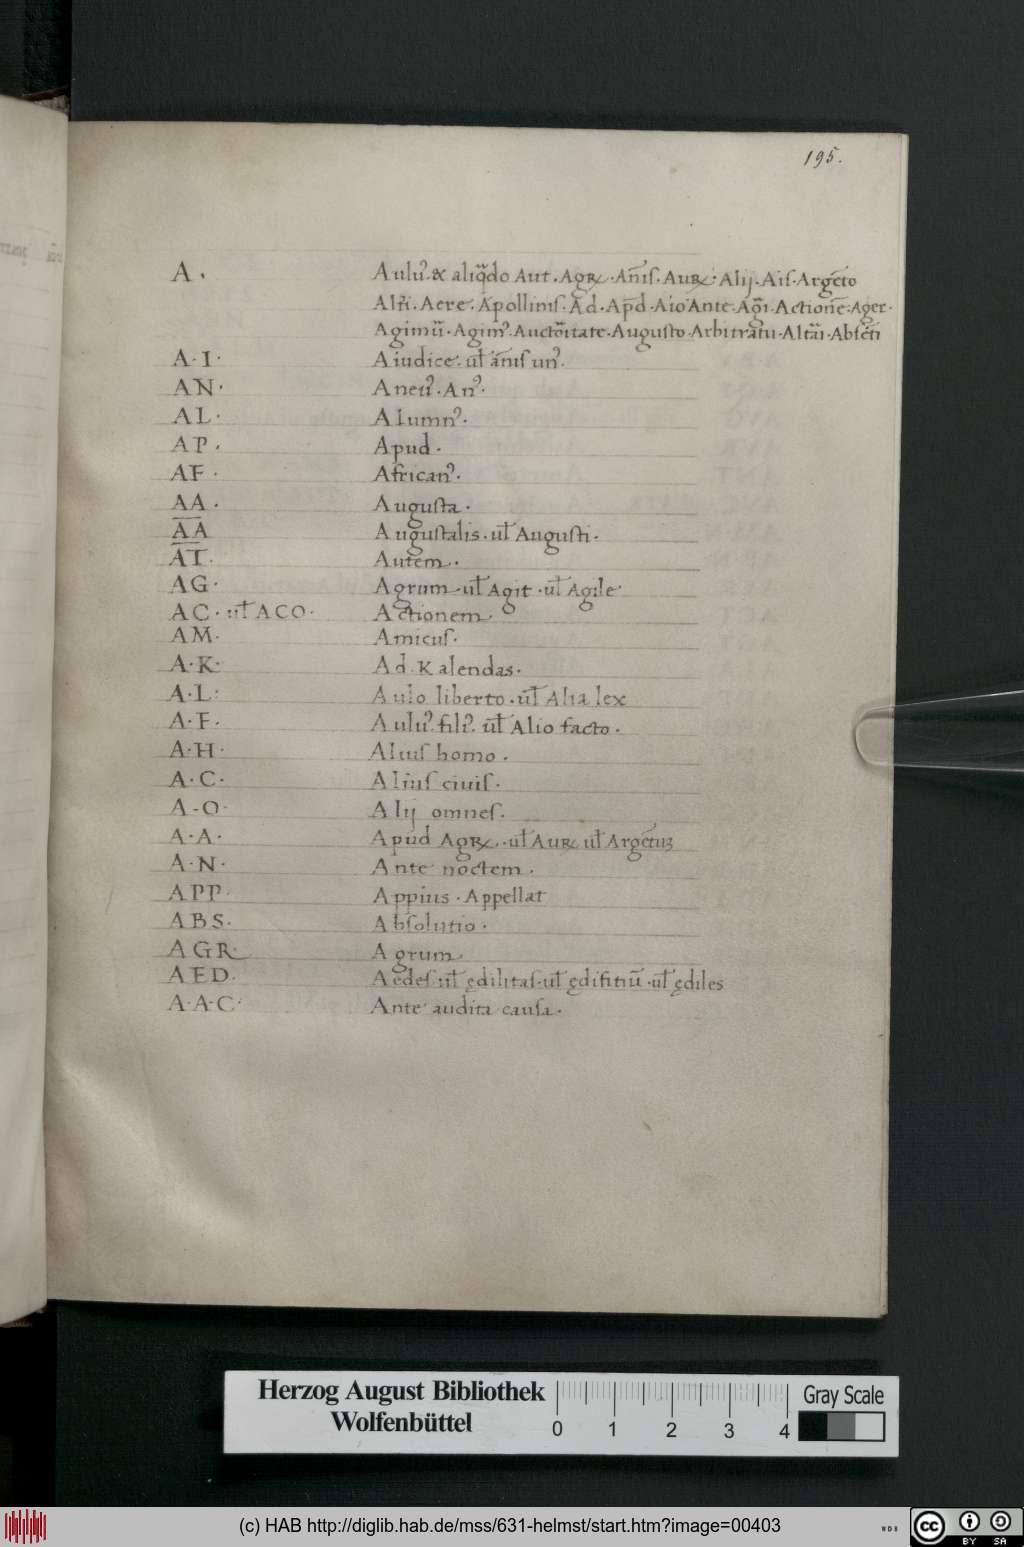 195.
A. Aulu᷒. & aliqdo Aut. Agꝝ. An̄is. Auꝝ. Alij. Ais. Argēto
Alrī. Aere. Apollinis. Ad. Apd. Aio Ante. Agi. Actionē. Ager.
Agimu. Agim᷒. Auctoritate. Augusto. Arbitratu. Altāi. Absēti
A. I. A iudice. ul̄ an̄is un᷒.
AN. Aneu᷒. An᷒.
AL. Alumn᷒.
AP. Apud.
AF. African᷒.
AA. Augusta.
A̅A̅ Augustalis. ul̄ Augusti.
A̅T̅. Autem.
AG. Agrum. ul̄ Agit. ul̄ Agile
AC. ul̄ ACO. Actionem.
AM. Amicus.
A. K. Ad. Kalendas.
A. L. Aulo liberto. ul̄ Alia lex
A. F. Aulu᷒. fili᷒. ul̄ Alio facto.
A. H. Alius homo.
A. C. Alius ciuis.
A. O. Alij omnes.
A. A. Apud Agꝝ. ul̄ Auꝝ ul̄ Argētuꝫ
A. N. Ante noctem.
APP. Appius. Appellat
ABS. Absolutio.
AGR. Agrum.
AED. Aedes. ul̄ ędilitas. ul̄ ędifitiū. ul̄ ędiles
A. A. C. Ante audita causa.
Herzog August Bibliothek
Wolfenbüttel
0 1 2 3 4
Gray Scale
(c) HAB http://diglib.hab.de/mss/631-helmst/start.htm?image=00403
WDB
cc BY SA